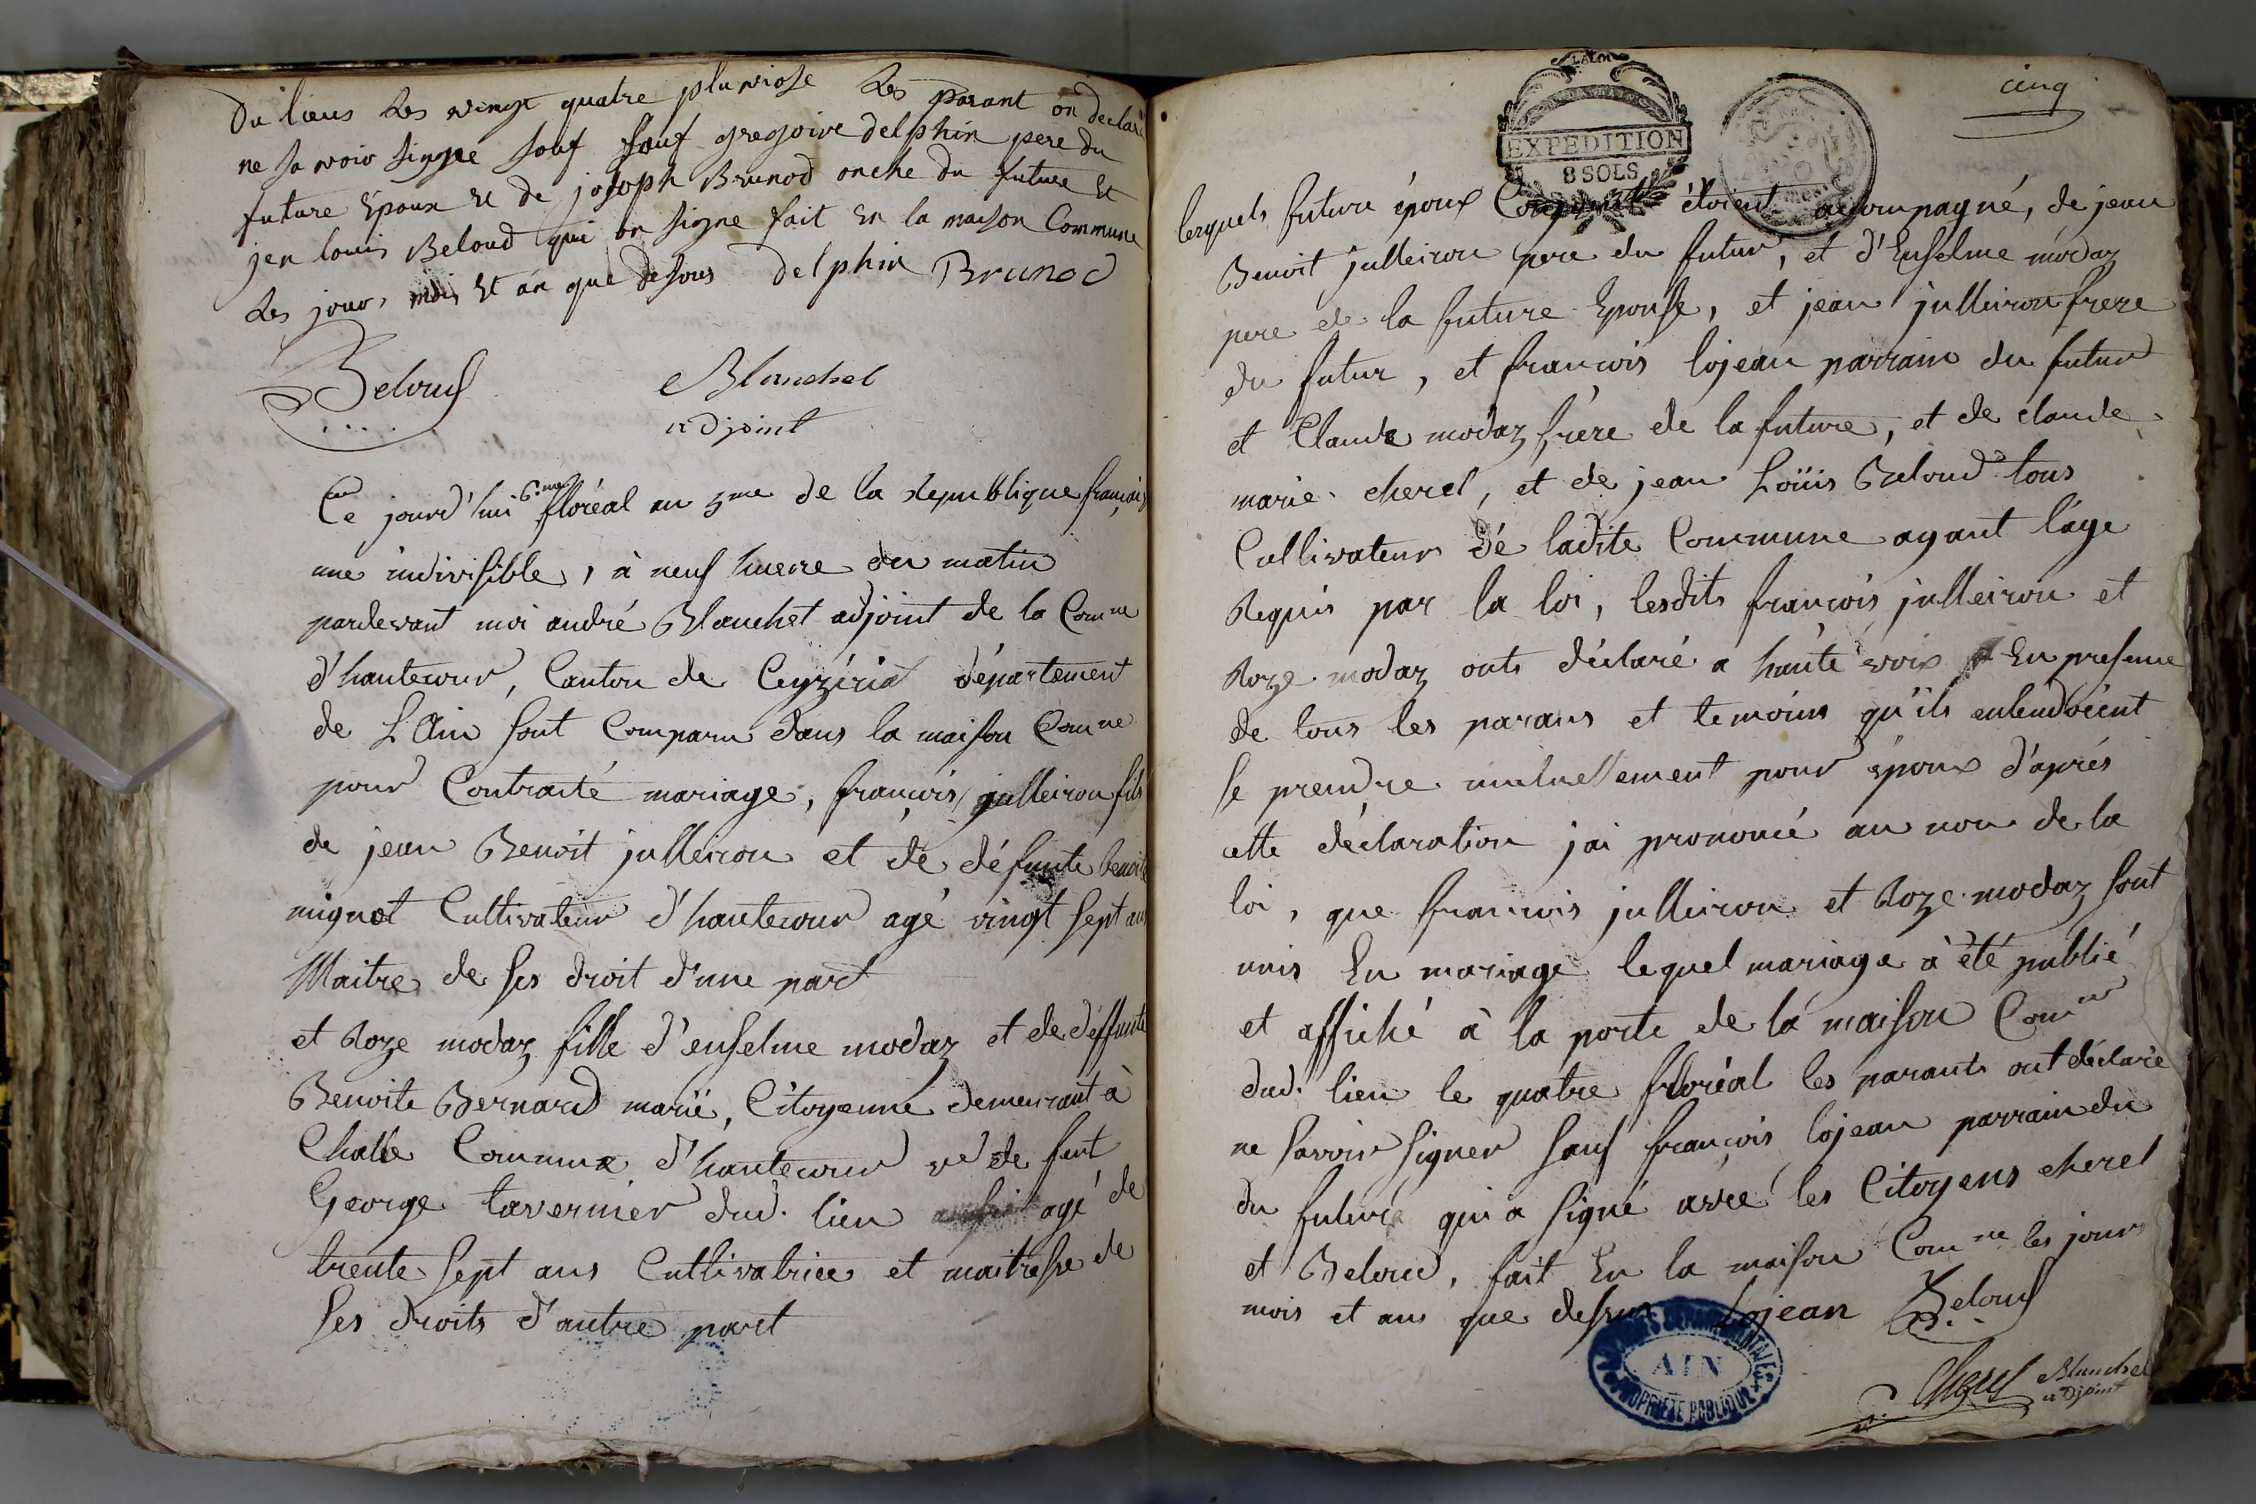 du lieus Les vingt quatre pluviose Les parant on declaré
ne savoir singné souf souf gregoire delphin pere du
future Epoux et de joseph Brunod onche du future Et
jen louis Beloud qui on signe fait En la maison Commune
Les jour, mois Et an que desous delphin Brunod
Beloud Blanchet
adjoint
Ce jourd'hui 6.me floréal an 5me de la Republique français
une indivisible, à neuf heure du matin
pardevant moi andré Blanchet adjoint de la Comne
d'hautecour, Canton de Ceyzériat département
de L'Ain sont Comparu dans la maison Comne
pour Contracté mariage, françois julleiron fils
de jean Benoit julleiron et de défunte benoite
mignot Cultivateur d'hautecour agé vingt sept ans
Maitre de ses droit d'une part
et Roze modaz fille d'enselme modaz et de déffunte
Benoite Bernard marië, Citoyenne demeurant à
Challe Commune d'hautecour ve de feut
George tavernier dud. lieu agé de
trente sept ans Cultivatrice et maitresse de
ses droits d'autre part
cinq
EXPEDITION
8 SOLS
lesquels futurs époux étoient accompagné, de jean
Benoit julleiron pere du futur, et d'Enselme modaz
pere de la future Epouse, et jean julleiron frere
du futur, et françois lojean parrain du futur
et Claude modaz frère de la future, et de claude
marie cherel, et de jean Loüis Beloud tous
Cultivateurs dé ladite Commune ayant l'age
Requis par la loi, lesdits françois julleiron et
Roze modaz onts déclaré a haute voix En presence
de tous les parans et temoins qu'ils entendoient
se prendre mutuellement pour époux d'après
cette déclaration jai prononcé au nom de la
loi, que françois julleiron et Roze modaz sont
unis En mariage lequel mariage à été publié
et affiché à la porte de la maison Comne
dud. lieu le quatre floréal les parants ont déclaré
ne savoir signer sauf françois lojean parrain du
du future qui a signé avec les Citoyens cherel
et Beloud, fait En la maison Comne les jours
mois et ans que dessus Lojean Beloud
ARCHIVES DEPARTEMENTALES
AIN
PROPRIETE PUBLIQUE
Cherel Blanchet
adjoint